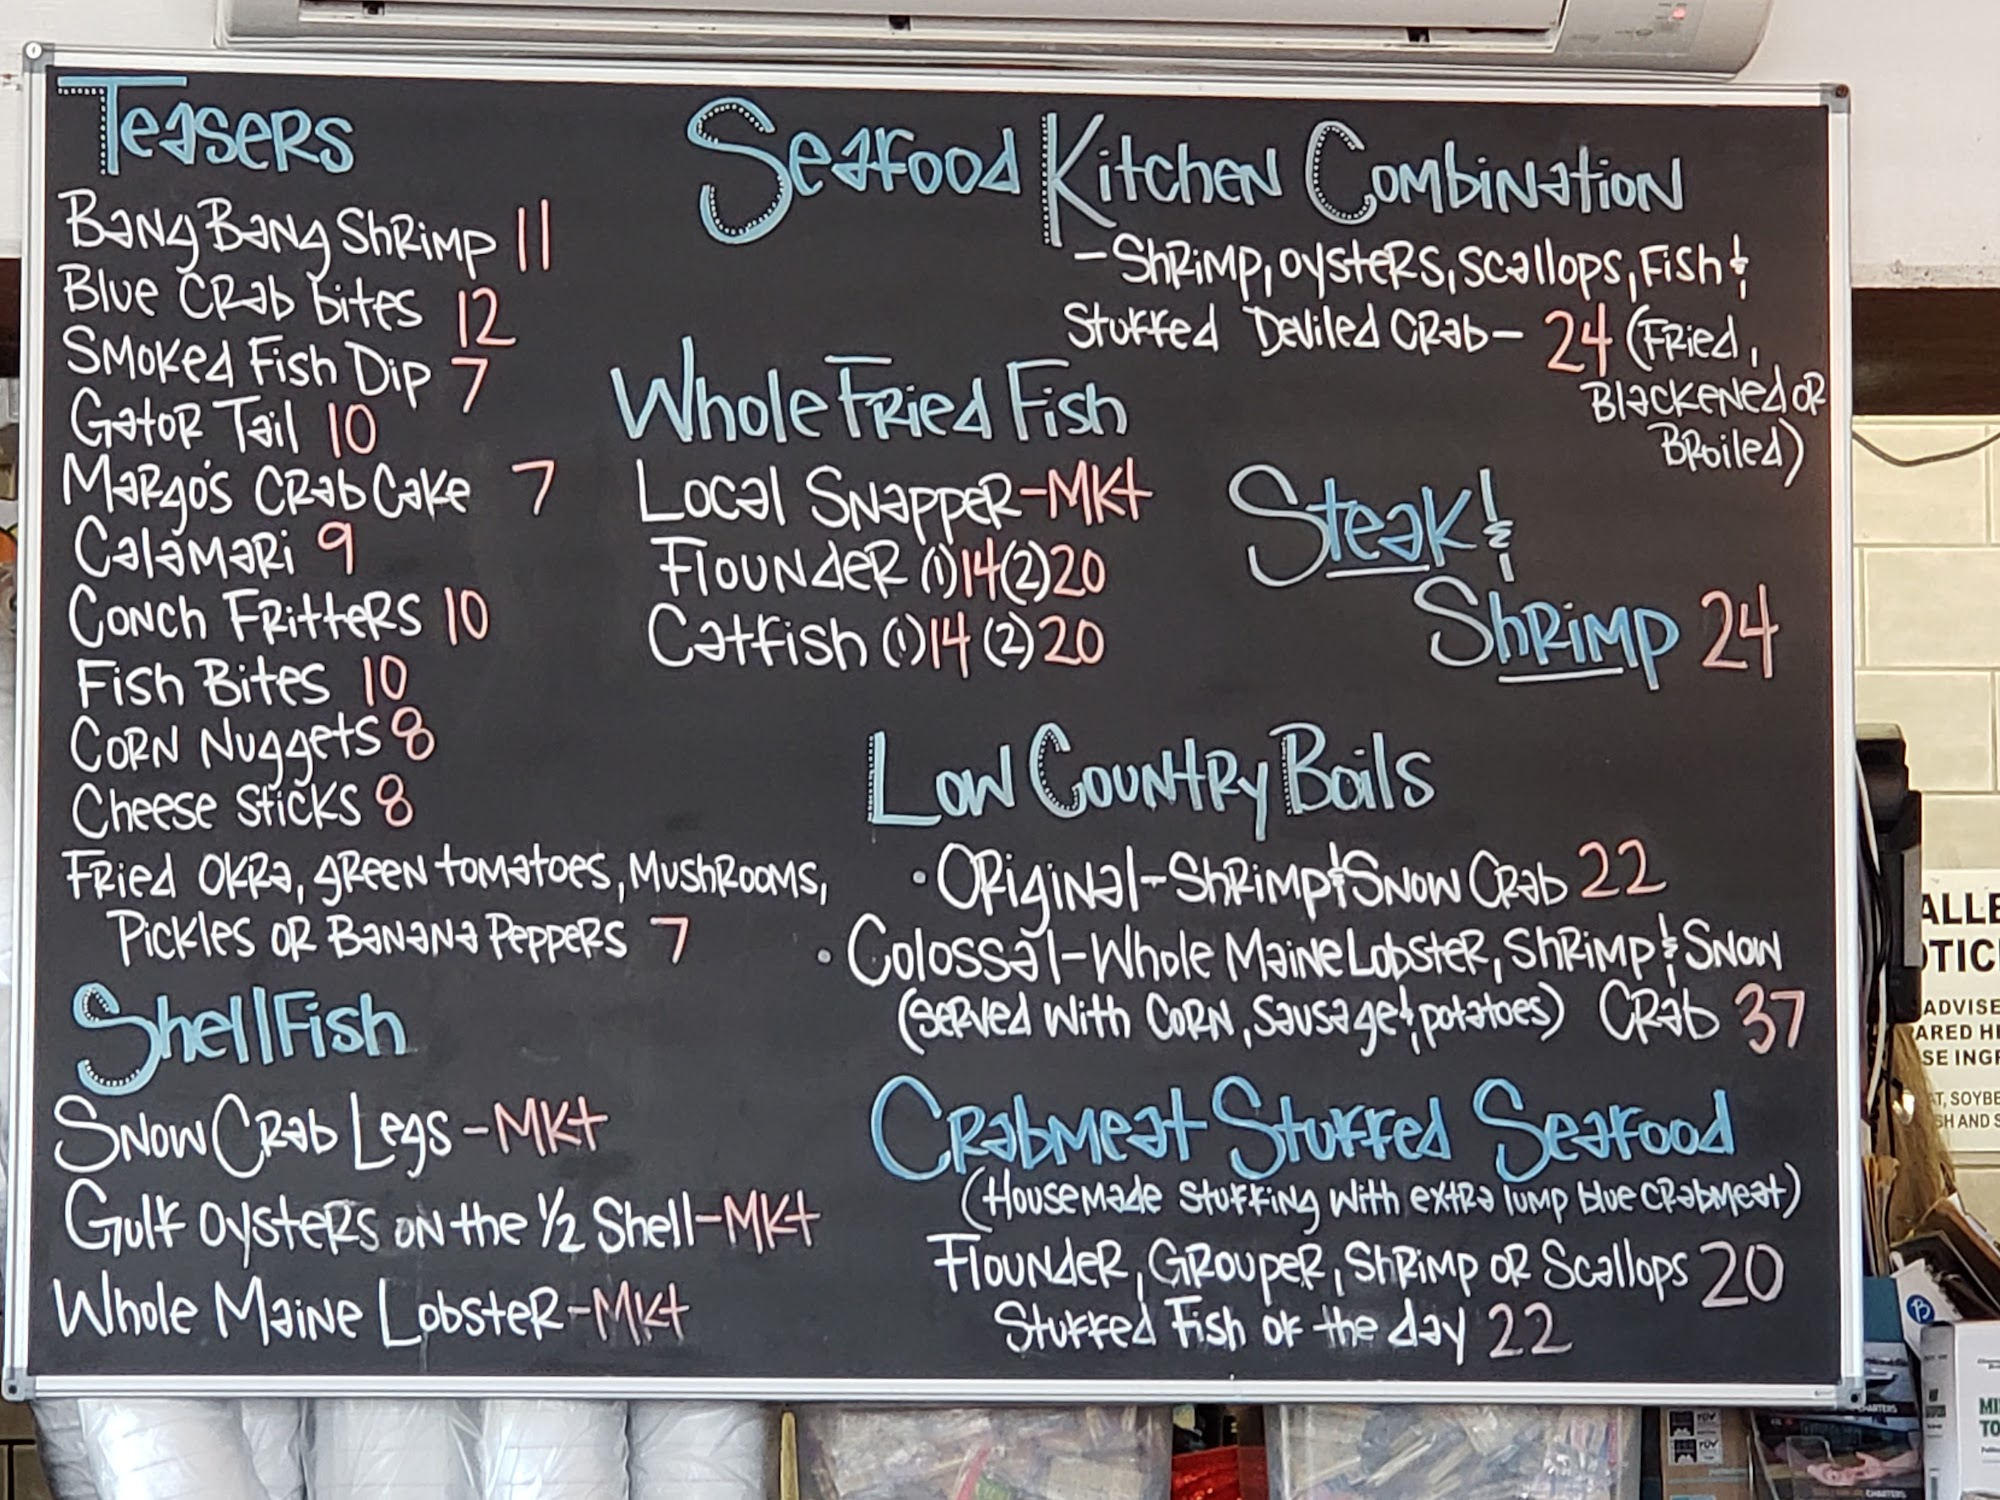 Teasers
Bang Bang Shrimp 11
Blue Crab bites 12
Smoked Fish Dip 7
Gator Tail 10
Margo's Crab Cake 7
Calamari 9
Conch Fritters 10
Fish Bites 10
Corn Nuggets 8
Cheese Sticks 8
Fried Okra, green tomatoes, Mushrooms,
Pickles or Banana Peppers 7
Shellfish
Snow Crab Legs - MKt
Gulf oysters on the 1/2 Shell - MKt
Whole Maine Lobster - MKt
Seafood Kitchen Combination
- Shrimp, oysters, scallops, Fish &
Stuffed Deviled Crab - 24 (Fried,
Blackened or
Broiled)
Whole Fried Fish
Local Snapper - MKt
Flounder (1) 14 (2) 20
Catfish (1) 14 (2) 20
Steak &
Shrimp 24
Low Country Boils
• Original - Shrimp & Snow Crab 22
• Colossal - Whole Maine Lobster, Shrimp & Snow
(served with Corn, Sausage & potatoes) Crab 37
Crabmeat Stuffed Seafood
(Housemade stuffing with extra lump blue crabmeat)
Flounder, Grouper, Shrimp or Scallops 20
Stuffed Fish of the day 22
ALLE
OTIC
ADVISE
ARED H
SE ING
T, SOYBE
SH AND S